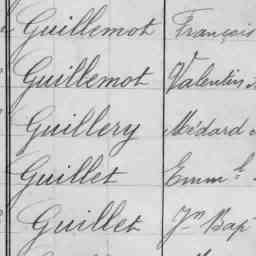 Guillemot François
Guillemot Valentin
Guillery Médard
Guillet Emm.l
Guillet Jn Bap